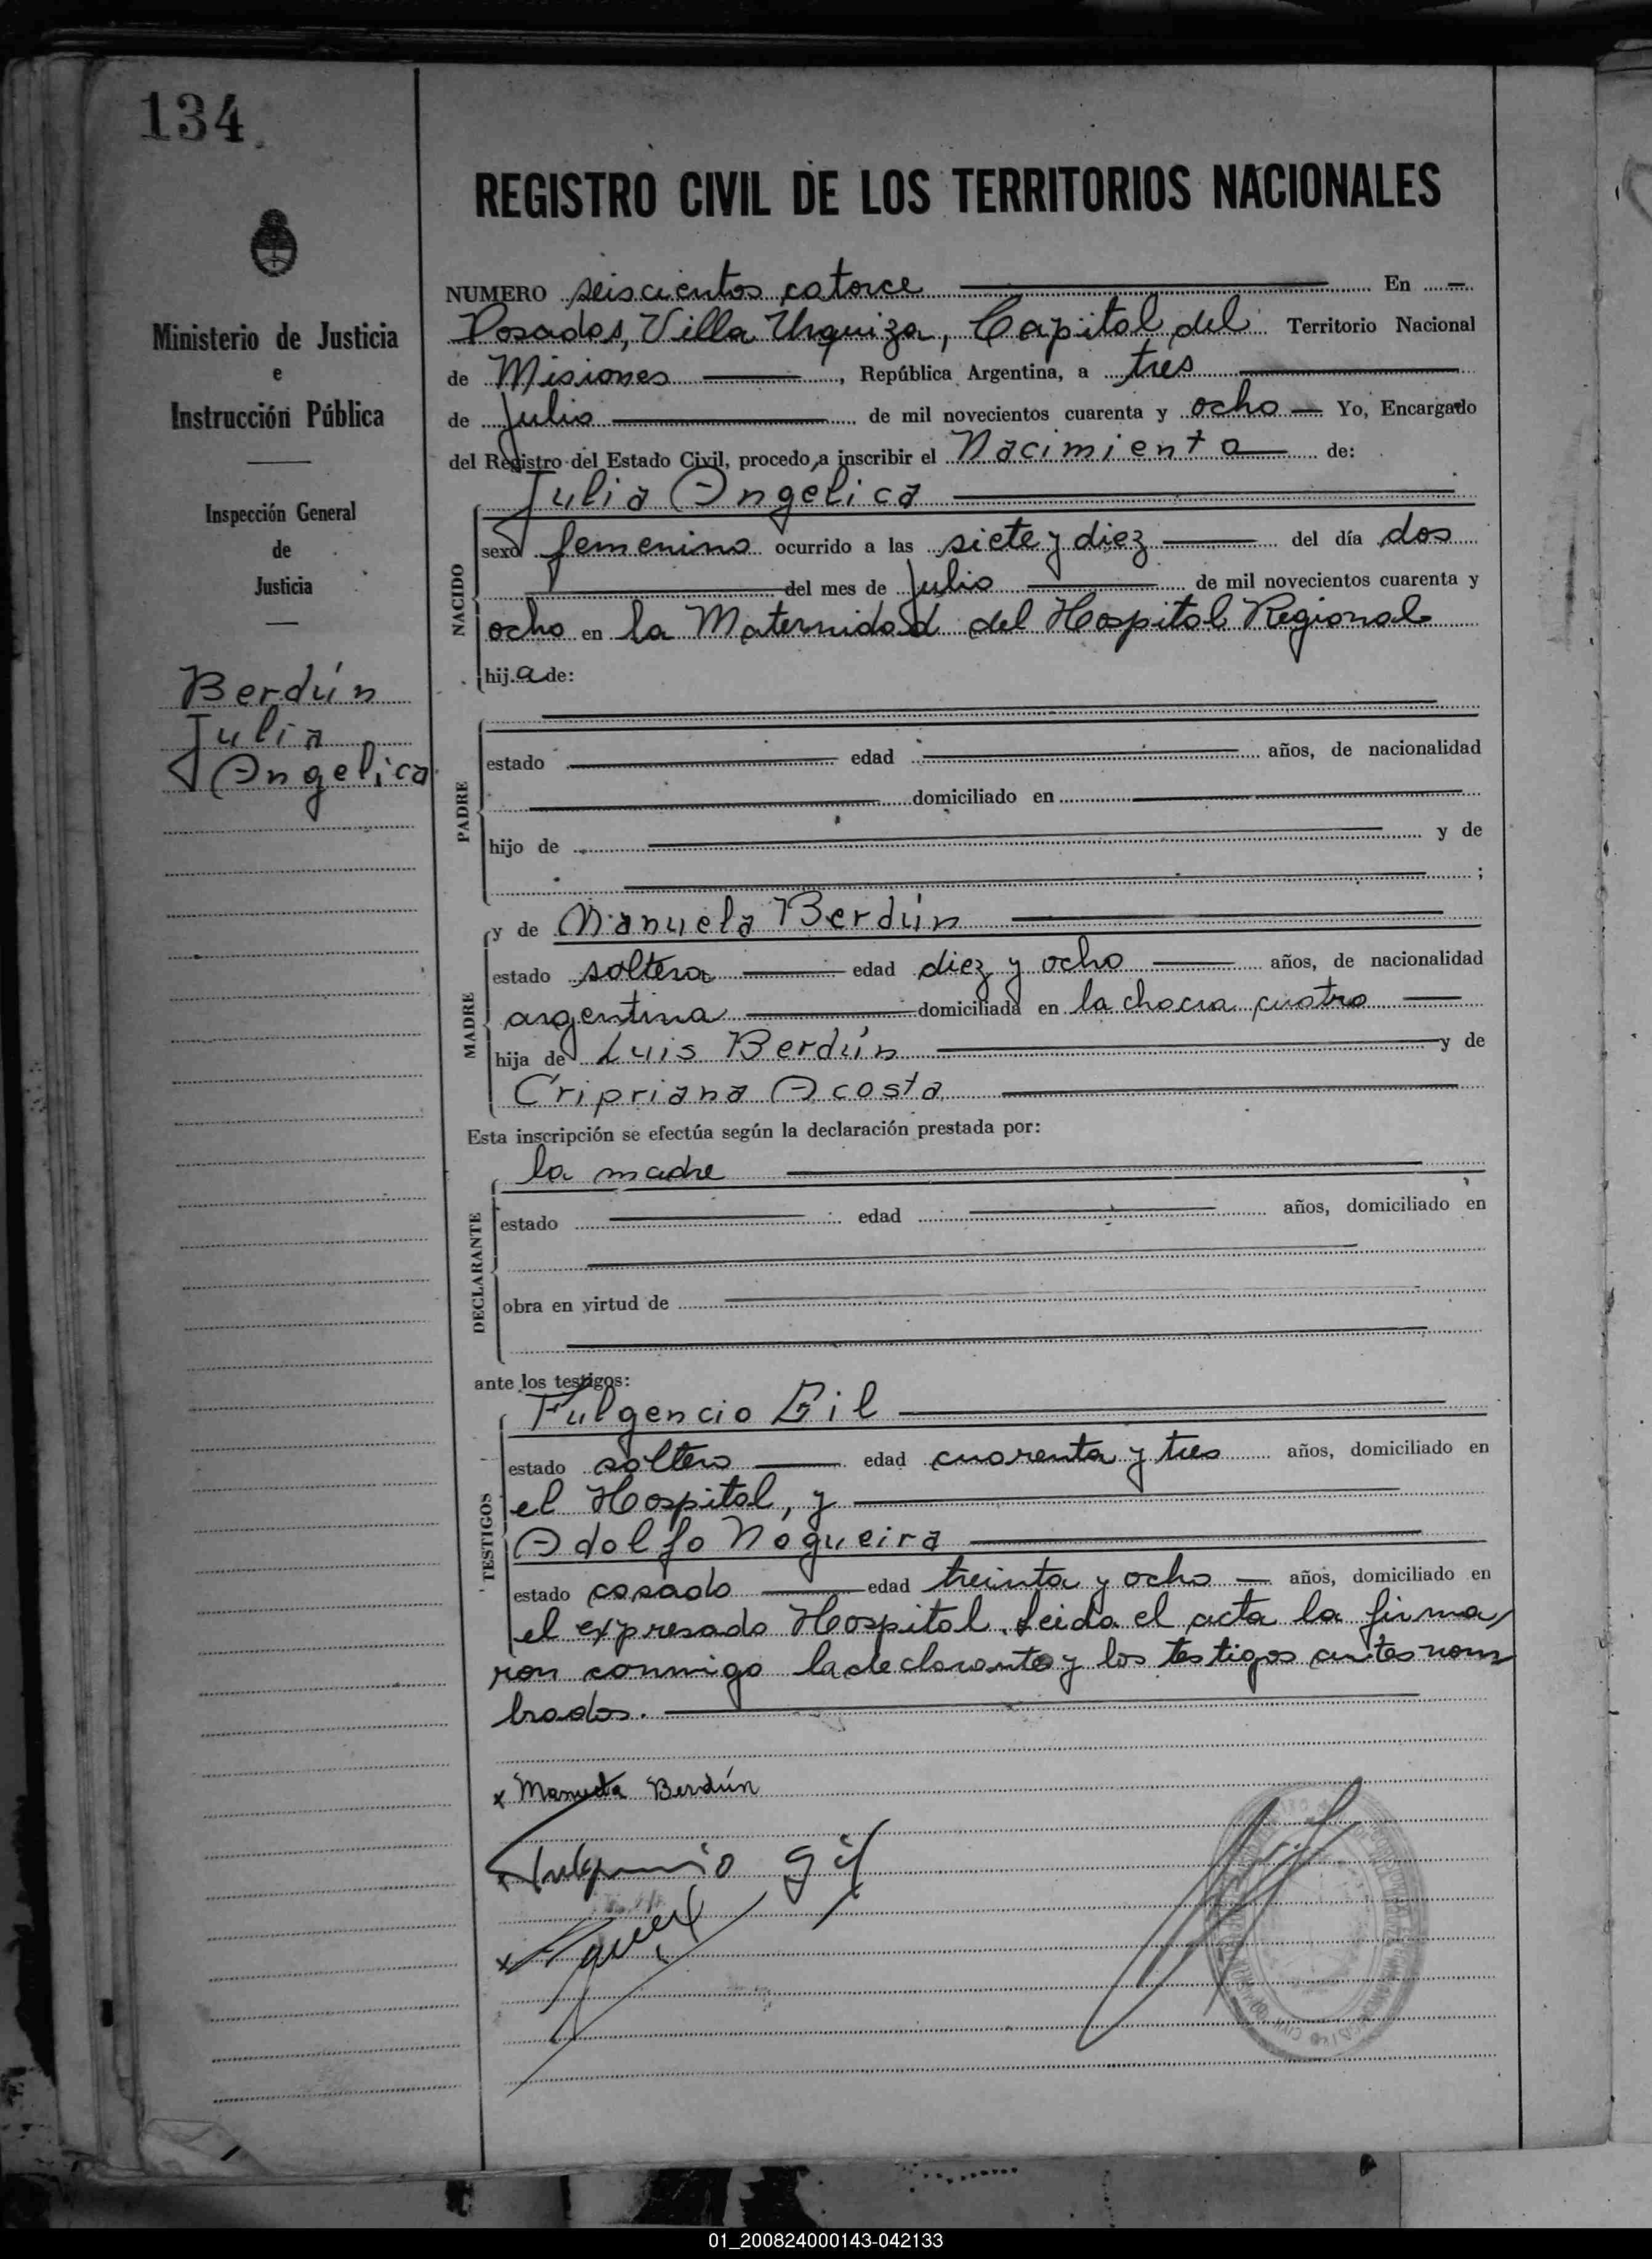 134
REGISTRO CIVIL DE LOS TERRITORIOS NACIONALES
Ministerio de Justicia
e
Instrucción Pública
Inspección General
de
Justicia
Berdún
Julia
Angelica
NUMERO seiscientos catorce En
Posadas, Villa Urquiza, Capital del Territorio Nacional
de Misiones, República Argentina, a tres
de Julio de mil novecientos cuarenta y ocho Yo, Encargado
del Registro del Estado Civil, procedo a inscribir el Nacimiento de:
Julia Angelica
NACIDO
sexo femenino ocurrido a las siete y diez del día dos
del mes de Julio de mil novecientos cuarenta y
ocho en la Maternidad del Hospital Regional
hij.a de:
PADRE
estado edad años, de nacionalidad
domiciliado en
hijo de y de
;
y de Manuela Berdún
MADRE
estado soltera edad diez y ocho años, de nacionalidad
argentina domiciliada en la chacra cuatro
hija de Luis Berdún y de
Cripriana Acosta
Esta inscripción se efectúa según la declaración prestada por:
la madre
DECLARANTE
estado edad años, domiciliado en
obra en virtud de
ante los testigos:
Fulgencio Gil
TESTIGOS
estado soltero edad cuarenta y tres años, domiciliado en
el Hospital, y
Adolfo Nogueira
estado casado edad treinta y ocho años, domiciliado en
el expresado Hospital. Leida el acta la firma
ron conmigo la declarante y los testigos antes nom
brados.
x Manuela Berdún
Fulgencio Gil
01_200824000143-042133